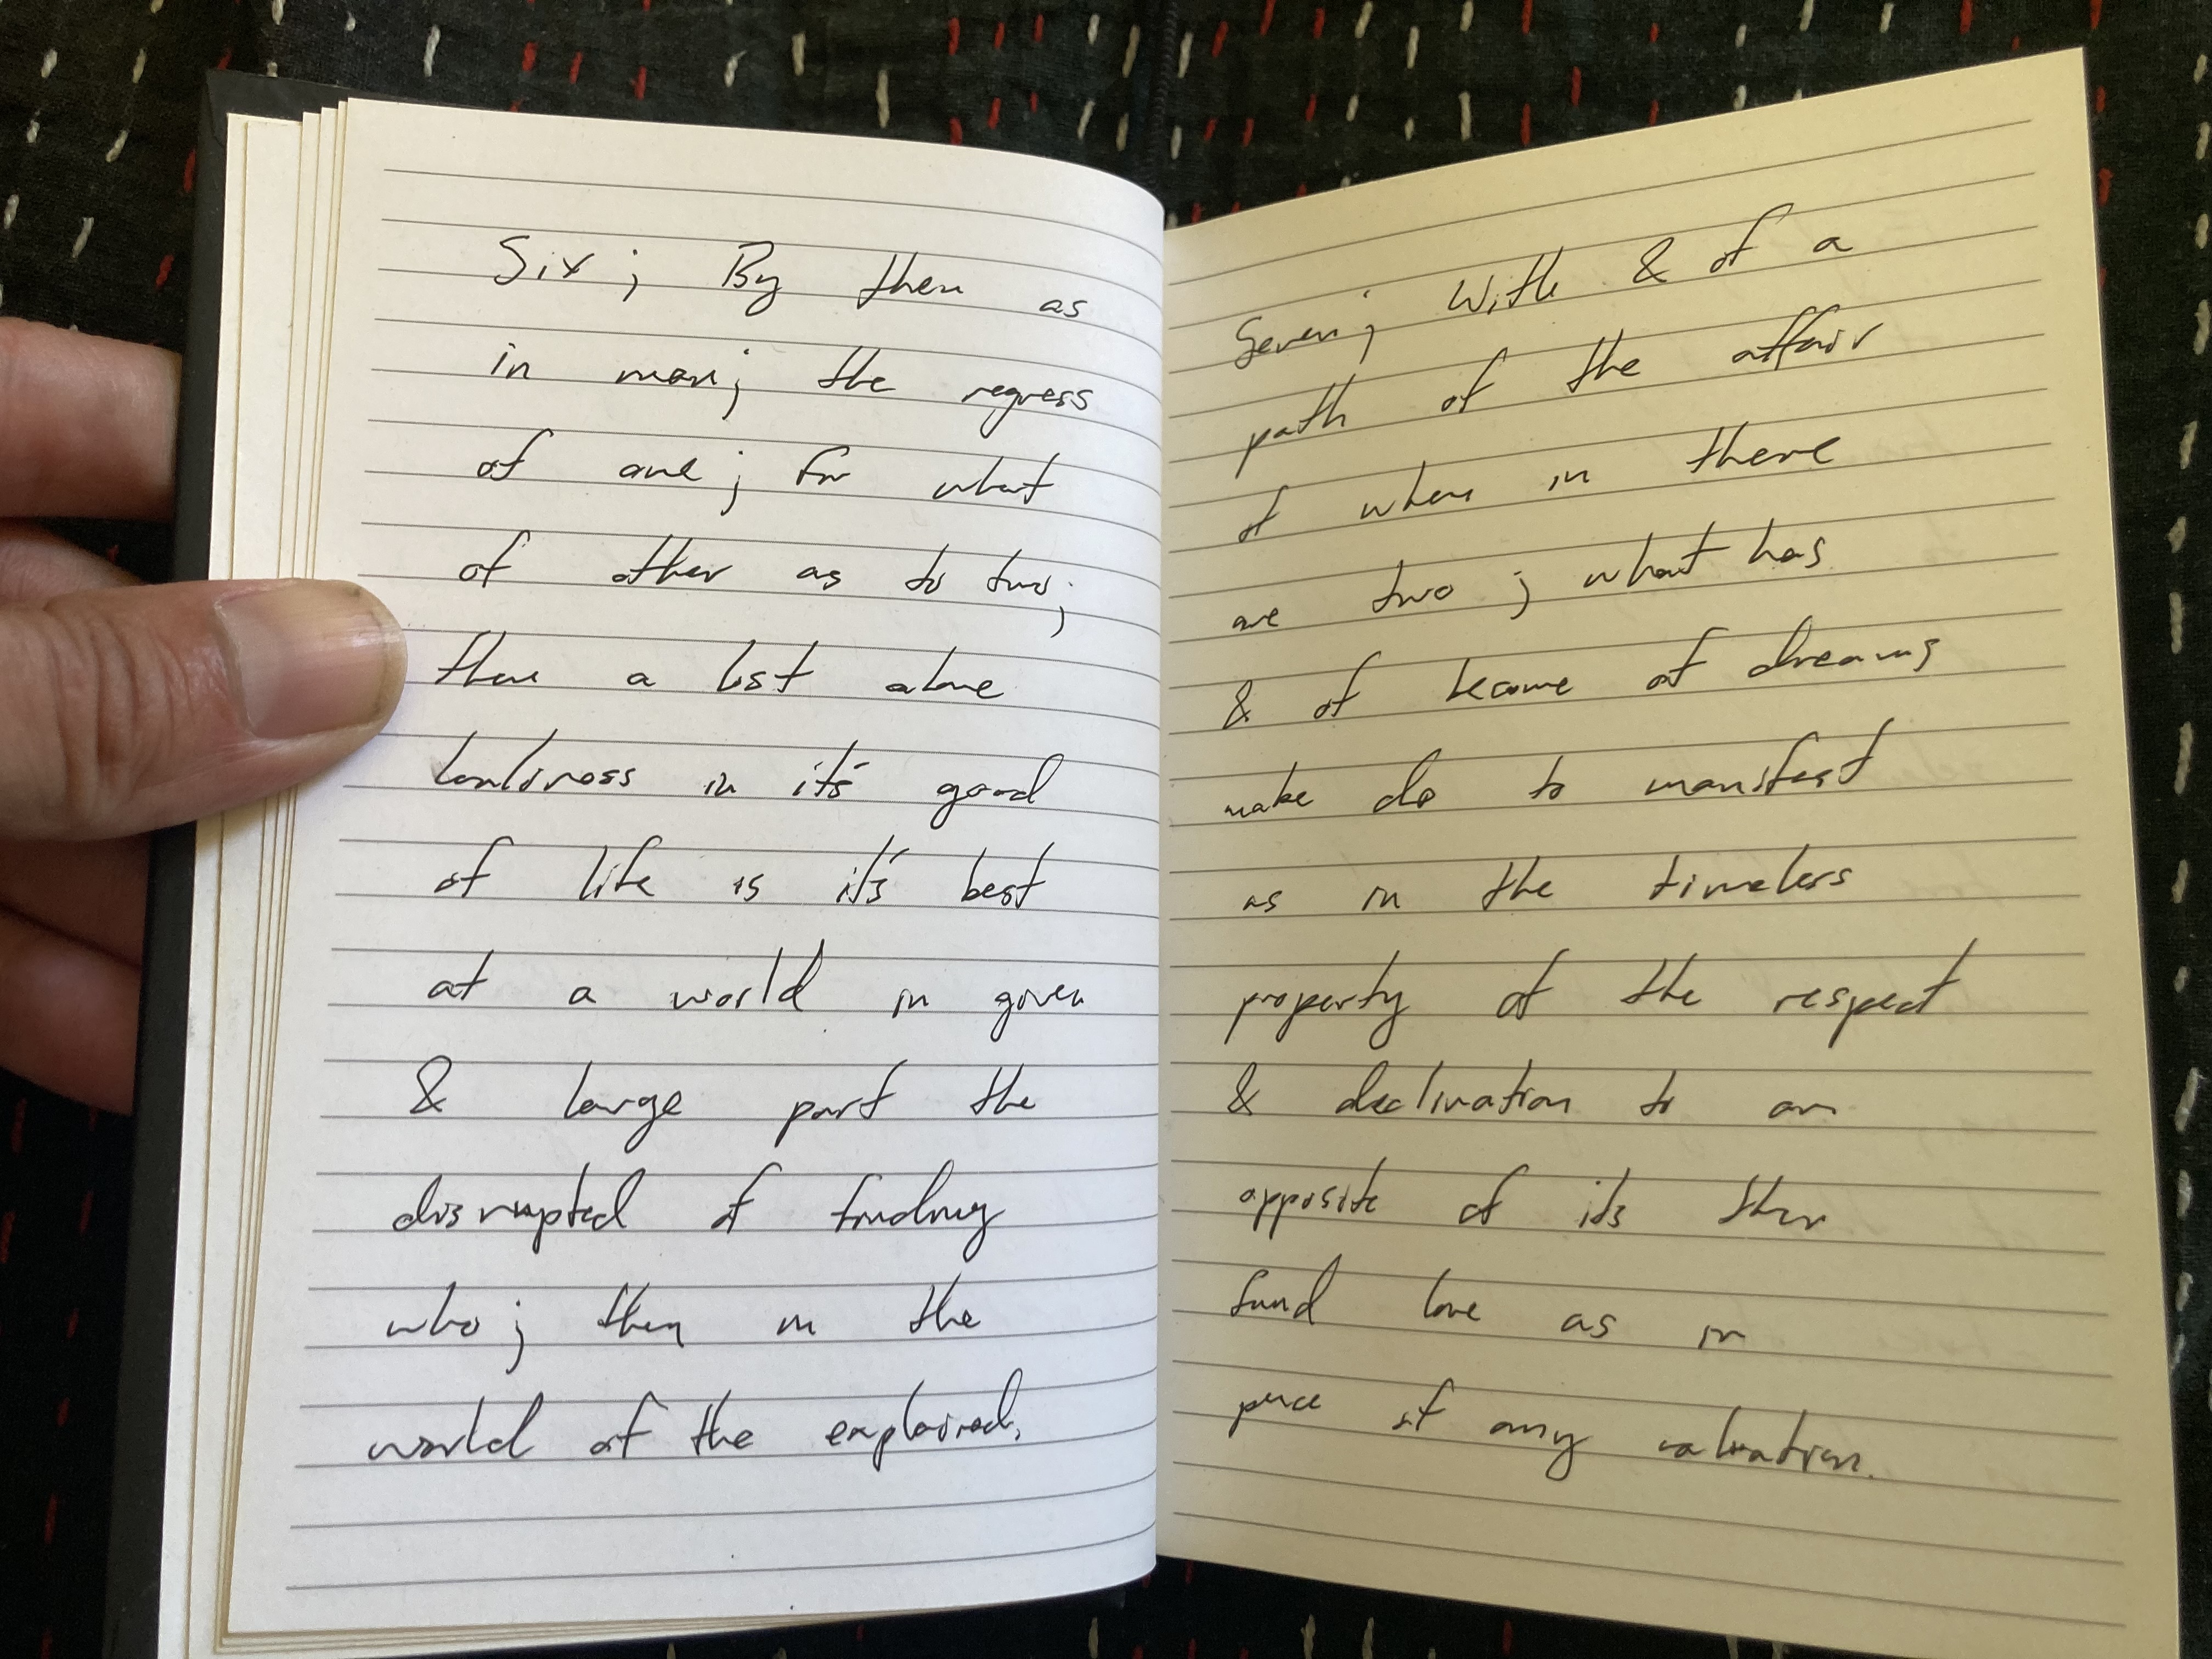 Six; By then as
in man; the regress
of one; for what
of other as to two;
then a lost alone
lonliness in it's good
of life is it's best
at a world in given
& large part the
disrupted of finding
who; then in the
world of the explained.
Seven; With & of a
path of the affair
of when in there
are two; what has
& of become of dreams
make do to manifest
as in the timeless
property of the respect
& declination to an
opposite of its then
fund love as in
of any valuation.